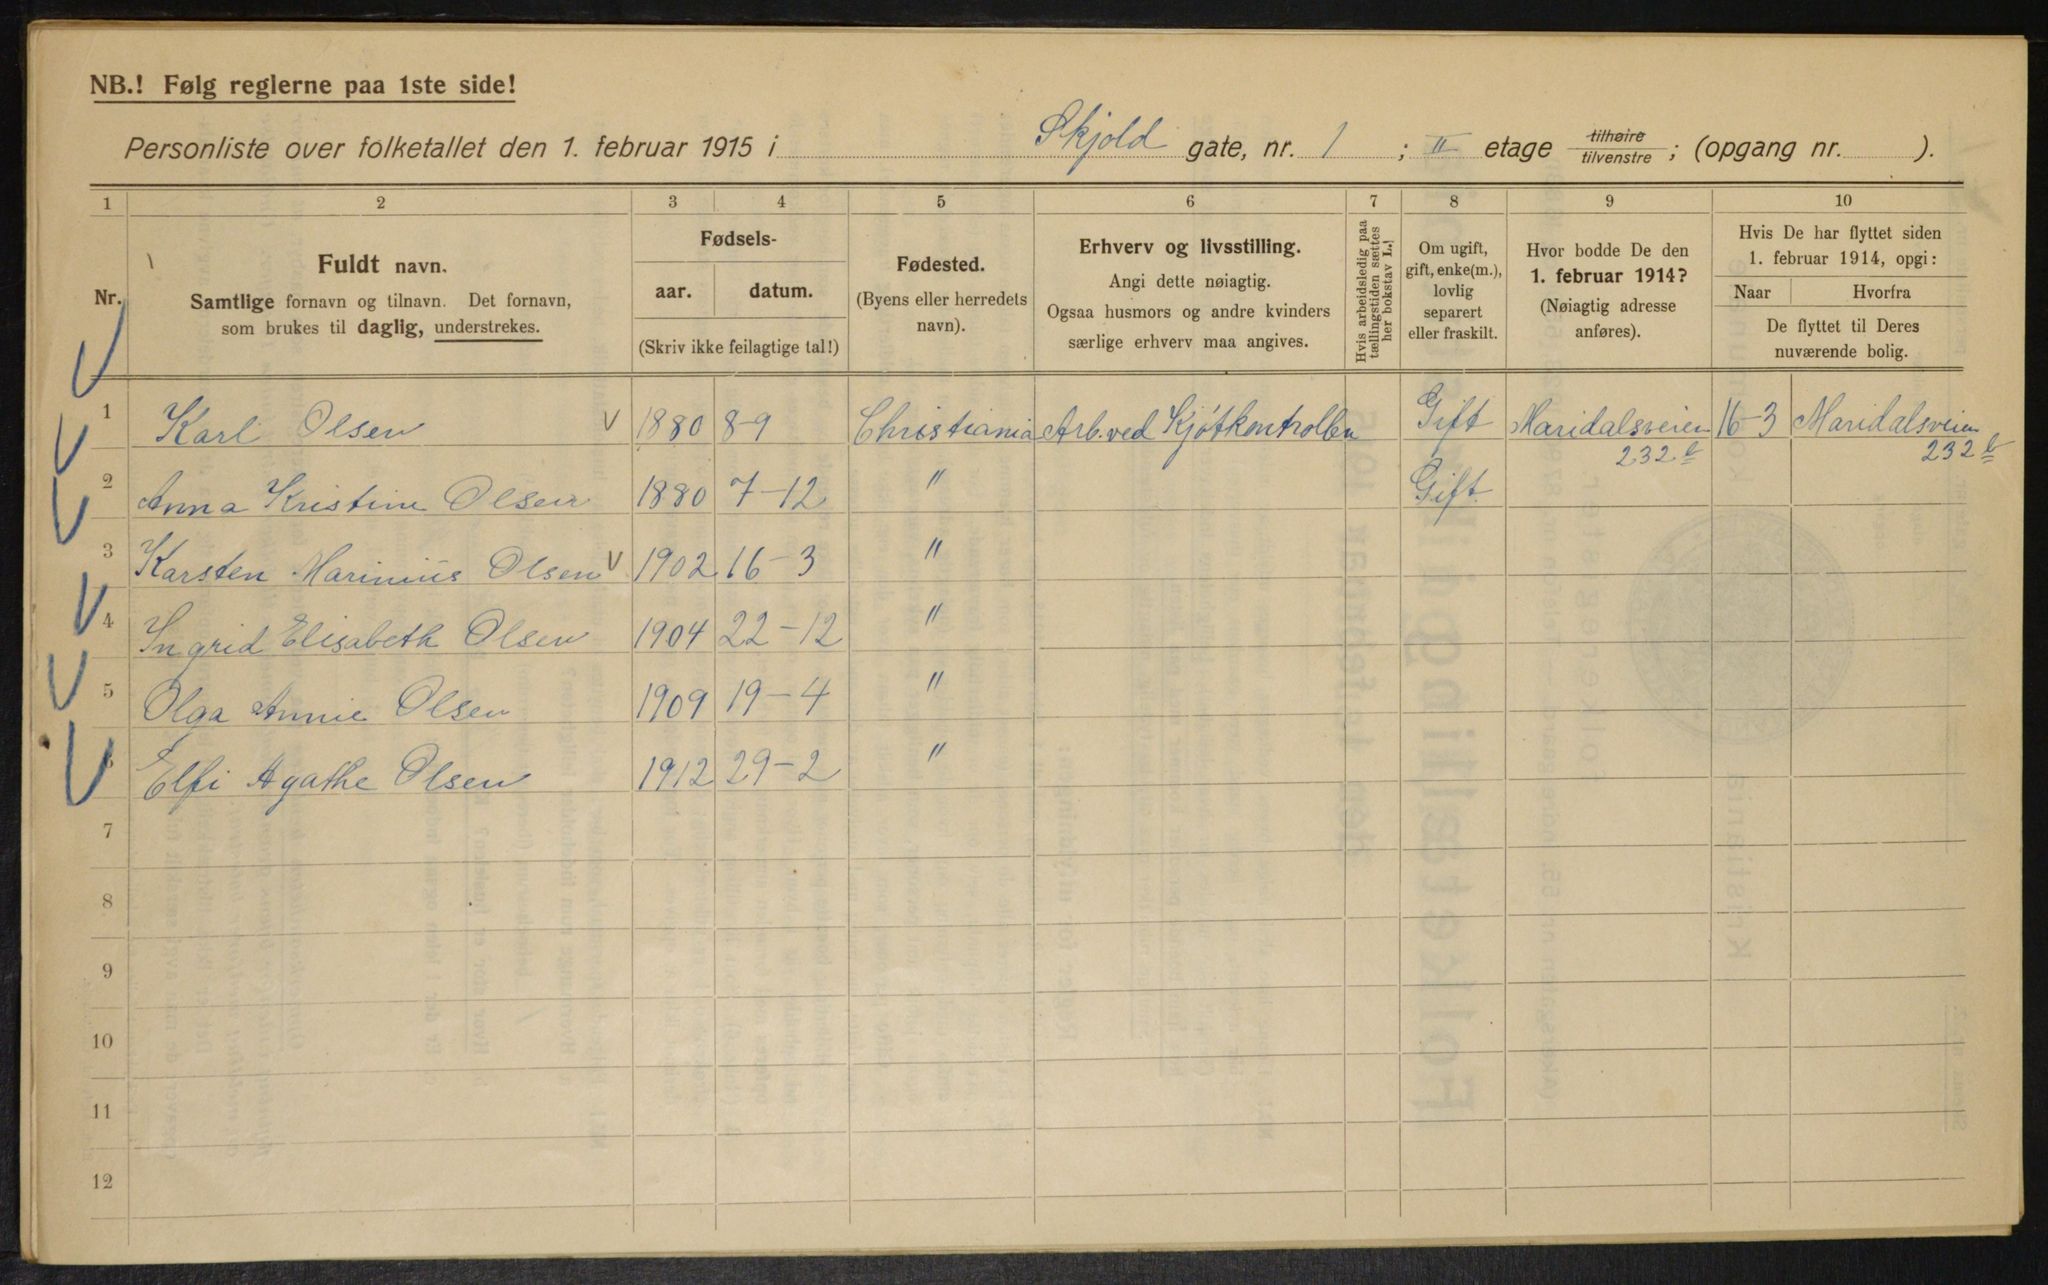 NB.! Følg reglerne paa 1ste side!
Personliste over folketallet den 1. februar 1915 i Skjold gate, nr. 1 ; II etage tilhøire tilvenstre ; (opgang nr. ).
1 2 3 4 5 6 7 8 9 10
Nr.
Fuldt navn.
Samtlige fornavn og tilnavn. Det fornavn,
som brukes til daglig, understrekes.
Fødsels-
aar. datum.
(Skriv ikke feilagtige tal!)
Fødested.
(Byens eller herredets
navn).
Erhverv og livsstilling.
Angi dette nøiagtig.
Ogsaa husmors og andre kvinders
særlige erhverv maa angives.
Hvis arbeidsledig paa
tællingstiden sættes
her bokstav L.!
Om ugift,
gift, enke(m.),
lovlig
separert
eller fraskilt.
Hvor bodde De den
1. februar 1914?
(Nøiagtig adresse
anføres).
Hvis De har flyttet siden
1. februar 1914, opgi:
Naar Hvorfra
De flyttet til Deres
nuværende bolig.
1 Karl Olsen V 1880 8-9 Christiania Arb. ved Kjøtkontrollen Gift Maridalsveien 16-3 Maridalsveien
232 b 232 b
2 Anna Kristine Olsen 1880 7-12 " Gift
3 Karsten Marinius Olsen V 1902 16-3 "
4 Ingrid Elisabeth Olsen 1904 22-12 "
5 Olga Annie Olsen 1909 19-4 "
6 Elfi Agathe Olsen 1912 29-2 "
7
8
9
10
11
12